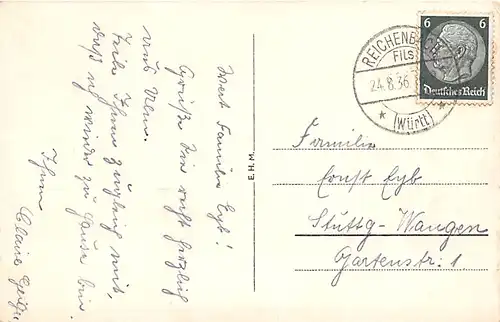 Wert Familie Eyb!
Grüße Sie recht herzlich
aus Ulm.
Teile Ihnen zugleich mit,
daß ich wieder zu Hause bin.
Ihre
Claire
E.H.M.
REICHENB
FILS
24.8.36
* (Württ) *
6 6
Deutsches Reich
Familie
Ernst Eyb
Stuttg-Wangen
Gartenstr. 1